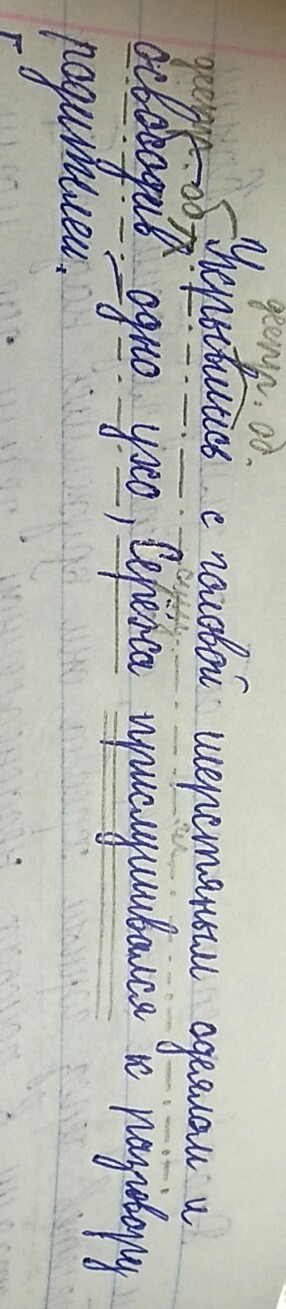 деепр. об.
Укрывшись с головой шерстяным одеялом и
деепр. об.
освободив одно ухо, Серёжа прислушивался к разговору
сущ.
родителей.